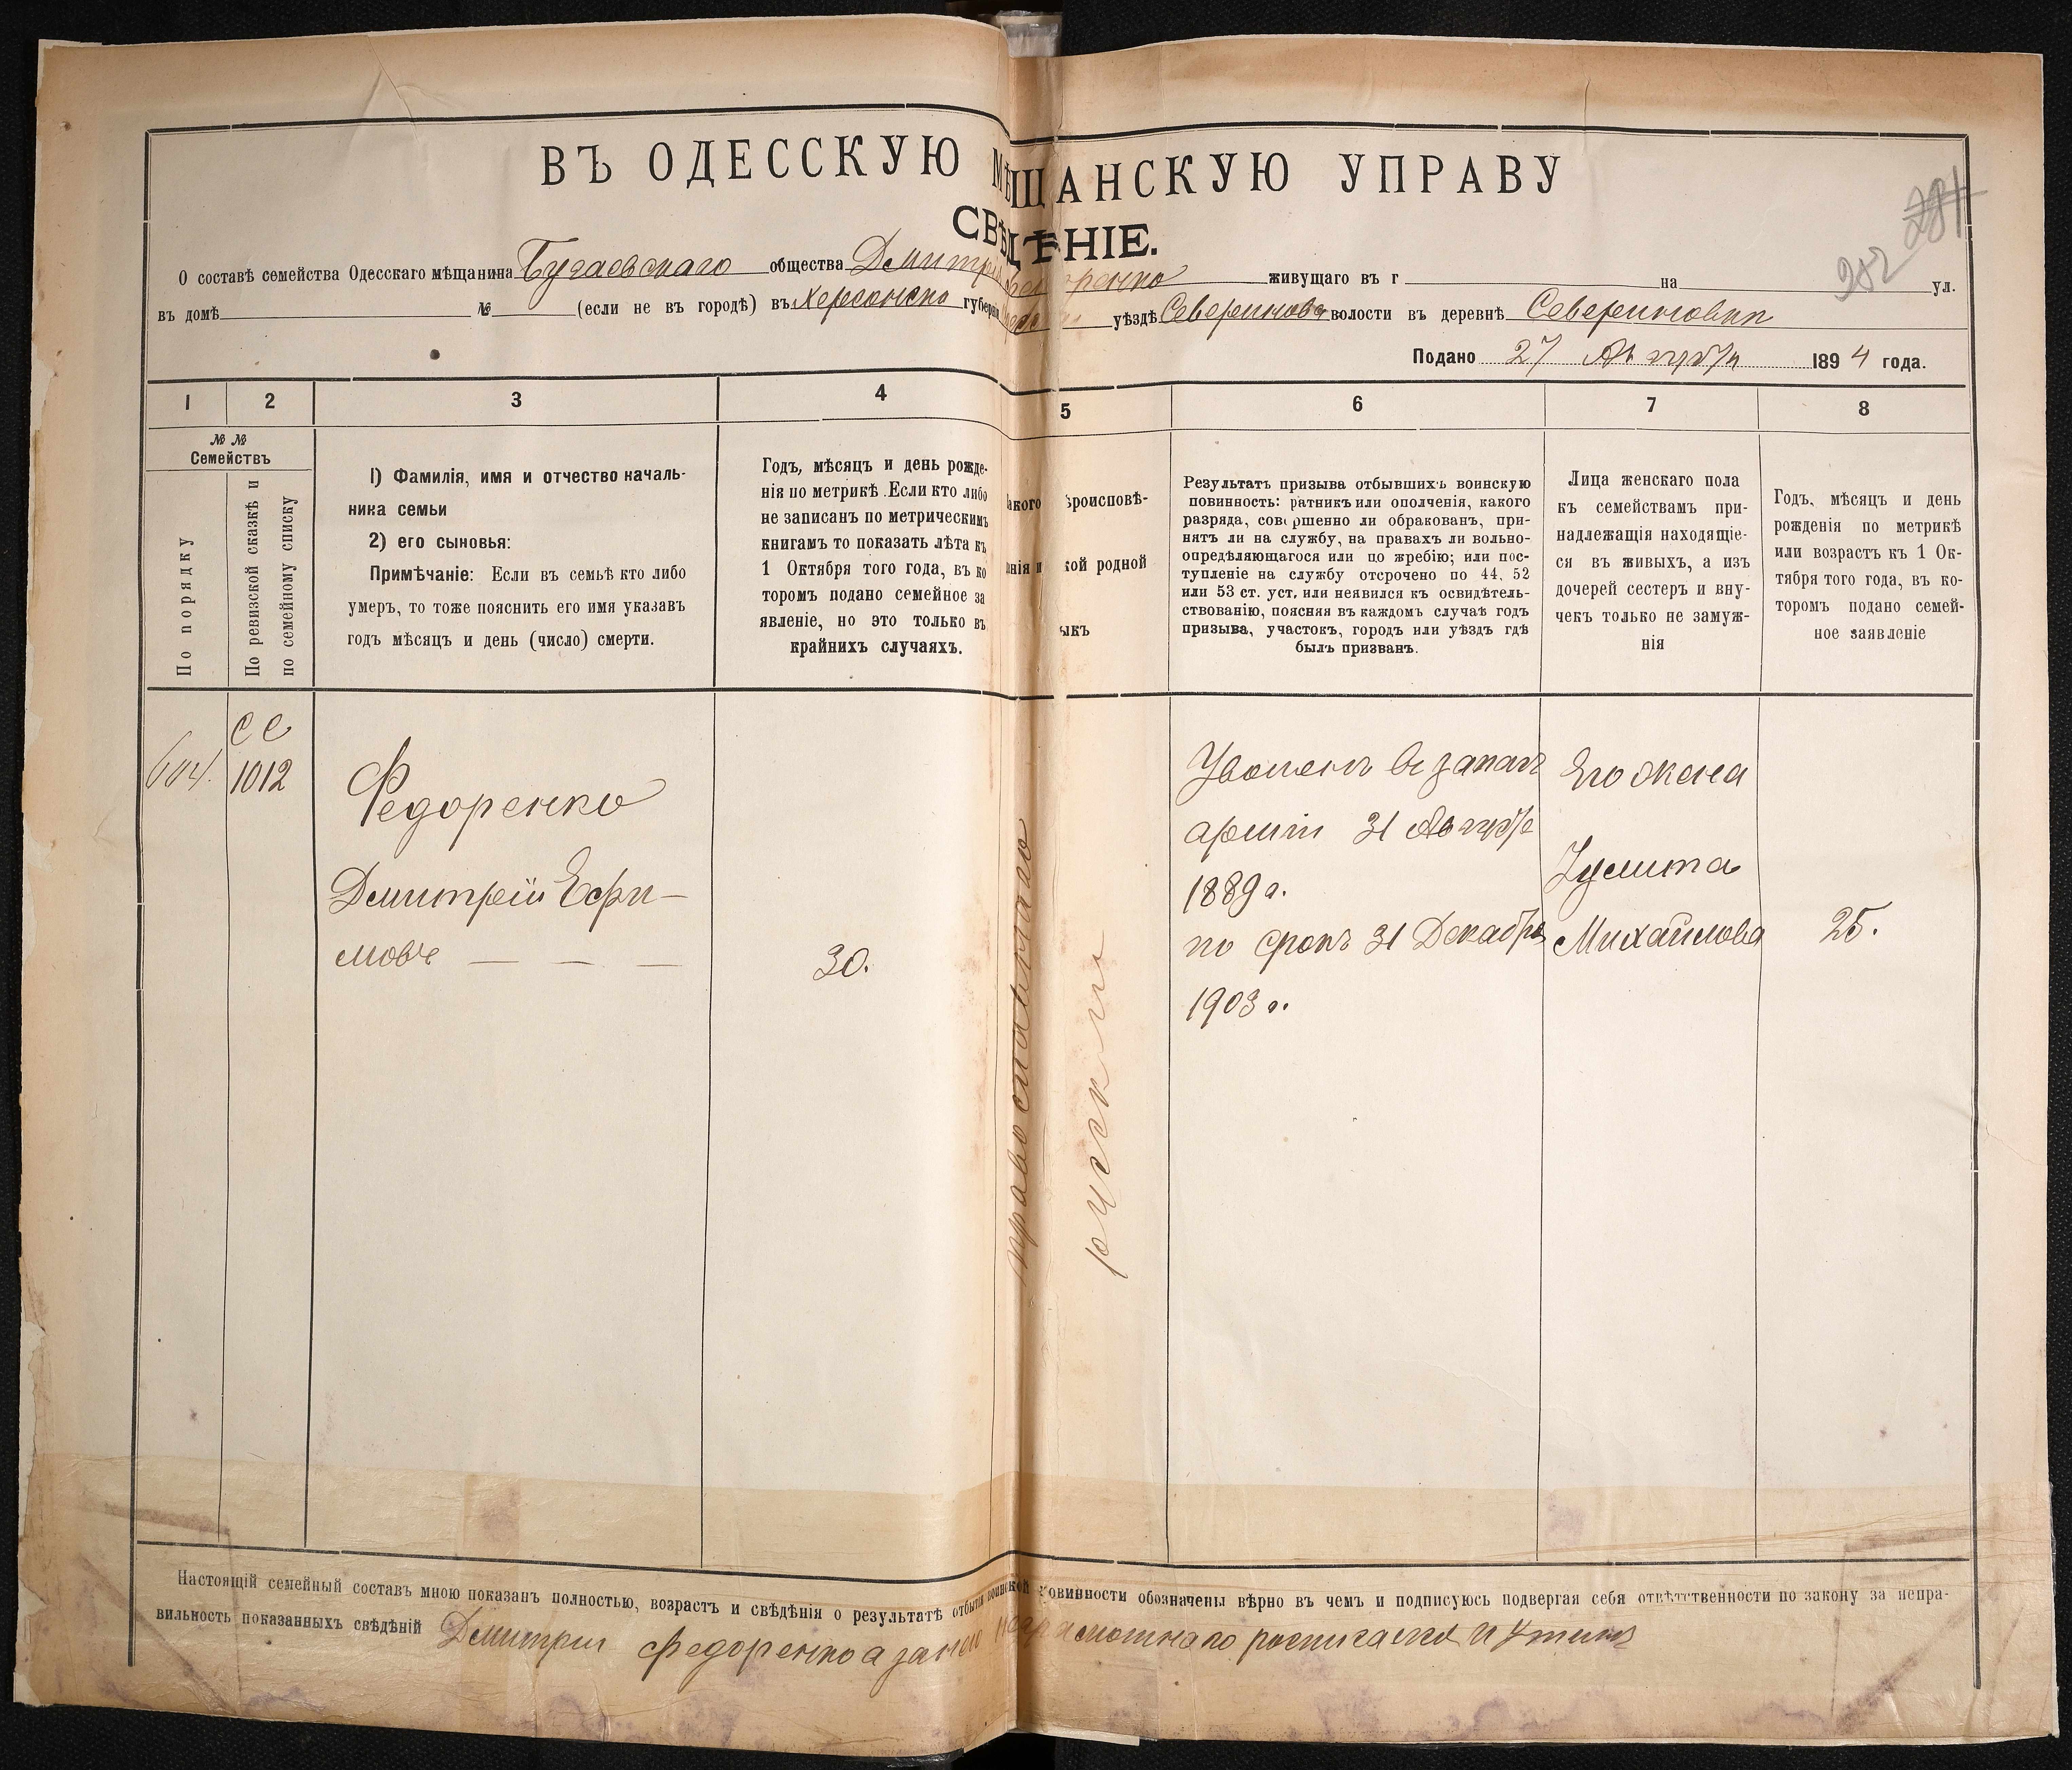 ВЪ ОДЕССКУЮ МѢЩАНСКУЮ УПРАВУ
СВѢДѢНІЕ.
281
282
О составѣ семейства Одесскаго мѣщанина Бугаевскаго общества Дмитрія Федоренко живущаго въ г на ул.
въ домѣ № (если не въ городѣ) въ Херсонско губерніи уѣздѣ Северинова волости въ деревнѣ Севериновки
Подано 27 Августа 1894 года.
1 2 3 4 5 6 7 8
№ №
Семействъ
По порядку
По ревизской сказкѣ и
по семейному списку
1) Фамилія, имя и отчество началь-
ника семьи
2) его сыновья:
Примѣчаніе: Если въ семьѣ кто либо
умеръ, то тоже пояснить его имя указавъ
годъ мѣсяцъ и день (число) смерти.
Годъ, мѣсяцъ и день рожде-
нія по метрикѣ. Если кто либо
не записанъ по метрическимъ
книгамъ то показать лѣта къ
1 Октября того года, въ ко
торомъ подано семейное за
явленіе, но это только въ
крайнихъ случаяхъ.
какого вѣроисповѣ-
данія и кой родной
ыкъ
Результатъ призыва отбывшихъ воинскую
повинность: ратникъ или ополченія, какого
разряда, совершенно ли обракованъ, при-
нятъ ли на службу, на правахъ ли вольно-
опредѣляющагося или цо жребію; или пос-
тупленіе на службу отсрочено по 44, 52
или 53 ст. уст. или неявился къ освидѣтель-
ствованію, поясняя въ каждомъ случаѣ годъ
призыва, участокъ, городъ или уѣздъ гдѣ
былъ призванъ.
Лица женскаго пола
къ семействамъ при-
надлежащія находящіе-
ся въ живыхъ, а изъ
дочерей сестеръ и вну-
чекъ только не замуж-
нія
Годъ, мѣсяцъ и день
рожденія по метрикѣ
или возрастъ къ 1 Ок-
тября того года, въ ко-
торомъ подано семей-
ное заявленіе
604.
СС
1012
Федоренко
Дмитрій Ефи-
мовъ — — —
30.
православнаго
русскаго
Уволенъ въ запасъ
арміи 31 Августа
1889 г.
по срокъ 31 Декабря
1903 г.
Его жена
Улита
Михайлова
25.
Настоящій семейный составъ мною показанъ полностью, возрастъ и свѣдѣнія о результатѣ отбытія воинской повинности обозначены вѣрно въ чемъ и подписуюсь подвергая себя отвѣтственности по закону за непра-
вильность показанныхъ свѣдѣній Дмитрий Федоренко а за него неграмотнаго росписался